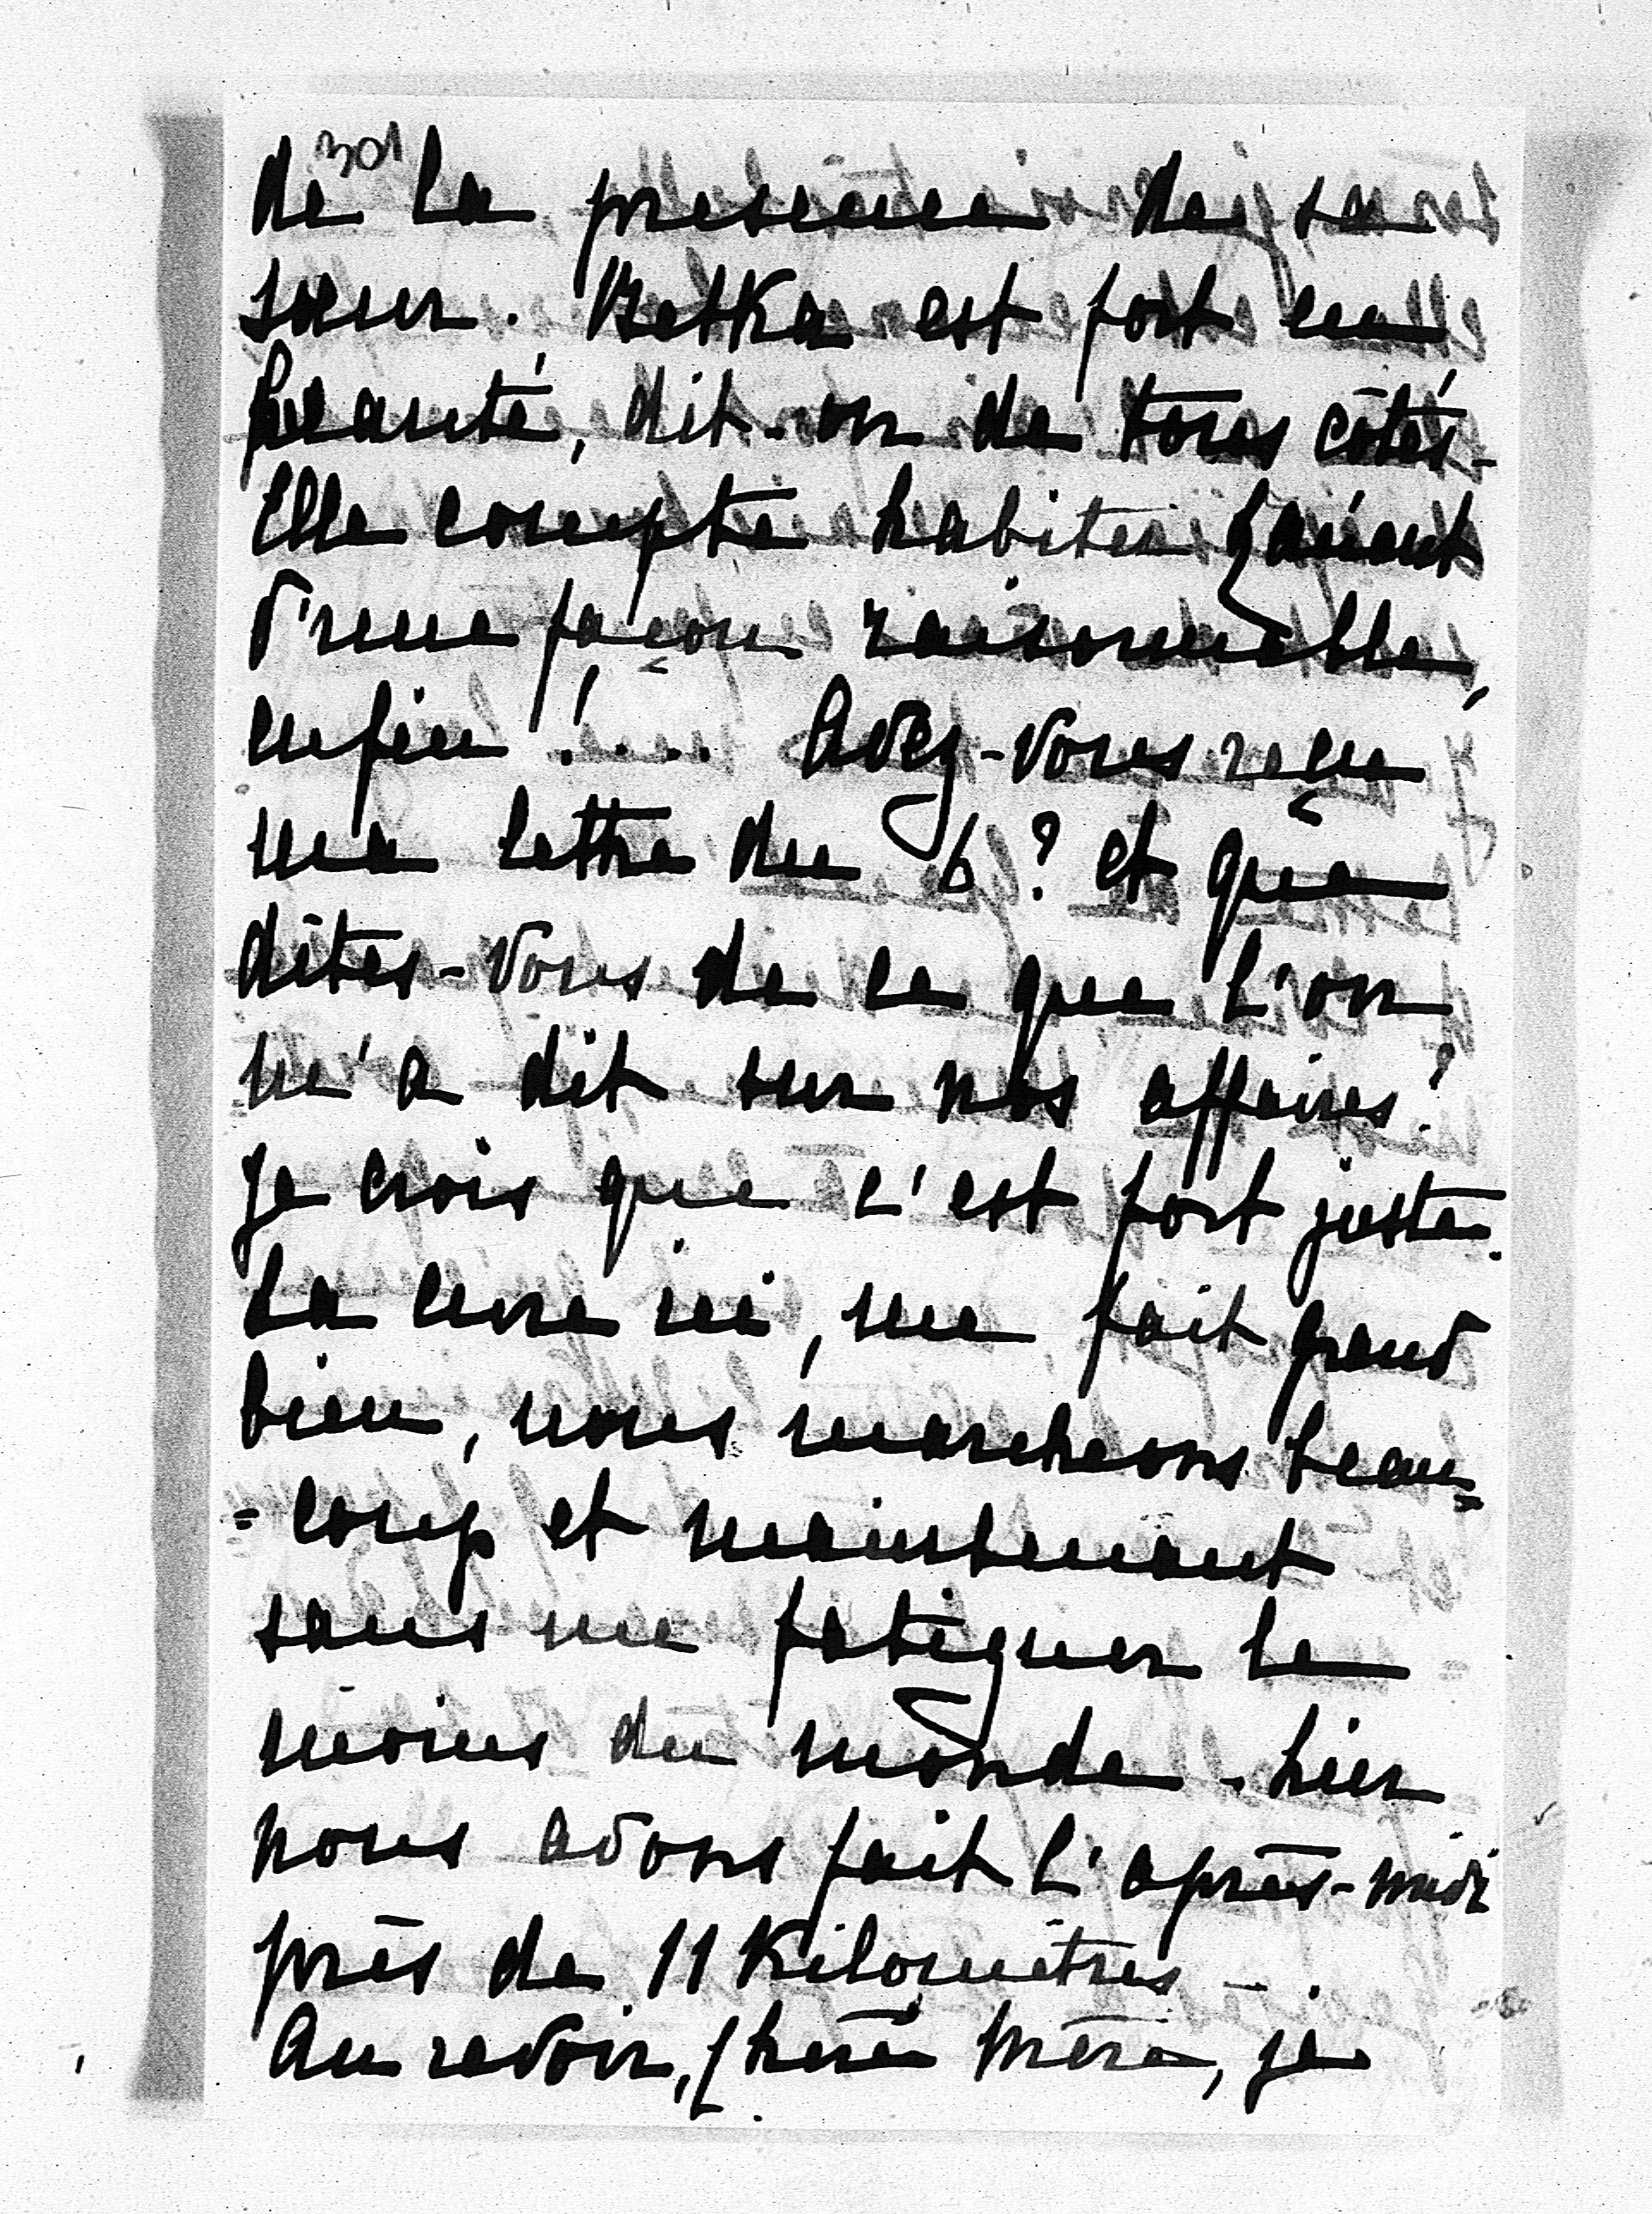 301
de la présence de sa
sœur. Betka est fort en
beauté, dit-on de tous côtés -
Elle compte habiter Łańcut
d'une façon raisonnable,
enfin !... Avez-vous reçu
ma lettre du 6 ? et que
dites-vous de ce que l'on
m'a dit sur nos affaires ?
Je crois que c'est fort juste.
La cure ici, me fait grand
bien, nous marcheons beau=
=coup et maintenant
sans me fatiguer le
moins du monde. hier
nous avons fait l'après-midi
près de 11 Kilomètres - .
Au revoir, Chère Mère, je